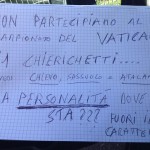 NON PARTECIPIAMO AL
CAMPIONATO DEL VATICA
CHIERICHETTI....
CHIEVO, SASSUOLO E ATALAN
LA PERSONALITÁ DOVE
STA???
FUORI I
CARATTER